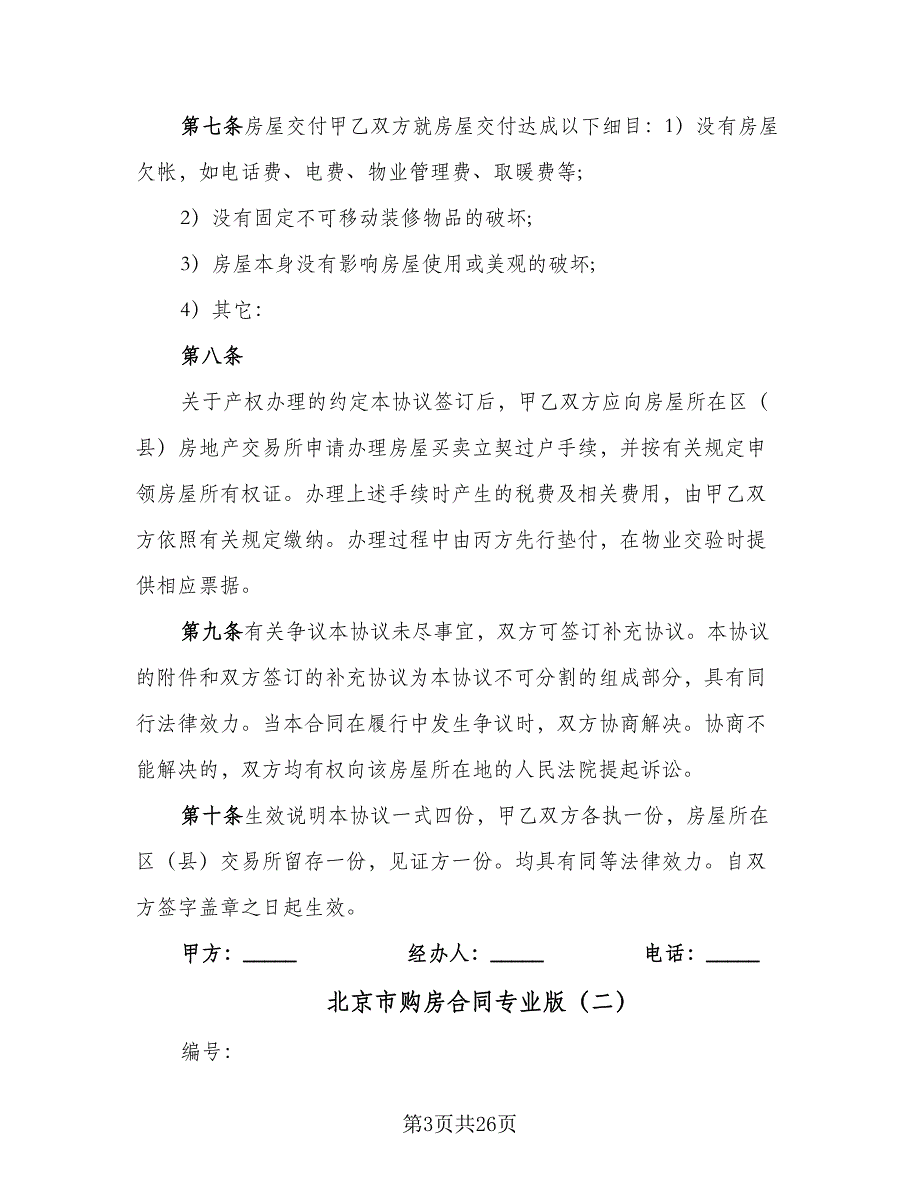 第七条房屋交付甲乙双方就房屋交付达成以下细目：1）没有房屋
欠帐，如电话费、电费、物业管理费、取暖费等;
2）没有固定不可移动装修物品的破坏;
3）房屋本身没有影响房屋使用或美观的破坏;
4）其它：
第八条
关于产权办理的约定本协议签订后，甲乙双方应向房屋所在区（
县）房地产交易所申请办理房屋买卖立契过户手续，并按有关规定申
领房屋所有权证。办理上述手续时产生的税费及相关费用，由甲乙双
方依照有关规定缴纳。办理过程中由丙方先行垫付，在物业交验时提
供相应票据。
第九条有关争议本协议未尽事宜，双方可签订补充协议。本协议
的附件和双方签订的补充协议为本协议不可分割的组成部分，具有同
行法律效力。当本合同在履行中发生争议时，双方协商解决。协商不
能解决的，双方均有权向该房屋所在地的人民法院提起诉讼。
第十条生效说明本协议一式四份，甲乙双方各执一份，房屋所在
区（县）交易所留存一份，见证方一份。均具有同等法律效力。自双
方签字盖章之日起生效。
甲方：_____ 经办人：_____ 电话：_____
北京市购房合同专业版（二）
编号：
第3页共26页